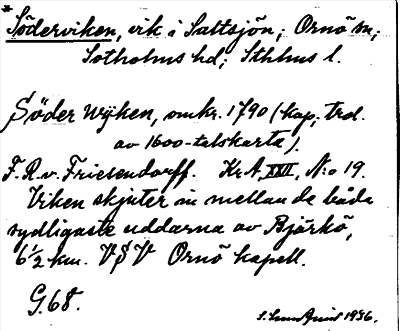 * Söderviken, vik i Saltsjön; Ornö sn;
Sotholms hd; Sthlms l.
Söder Wijken, omkr. 1790 (kop; trol.
av 1600-talskarta).
F. R. v. Friesendorff. Kr A, XXII, N:o 19.
Viken skjuter in mellan de båda
sydligaste uddarna av Björkö,
6½ km. VSV Ornö kapell.
G. 68.
1936.